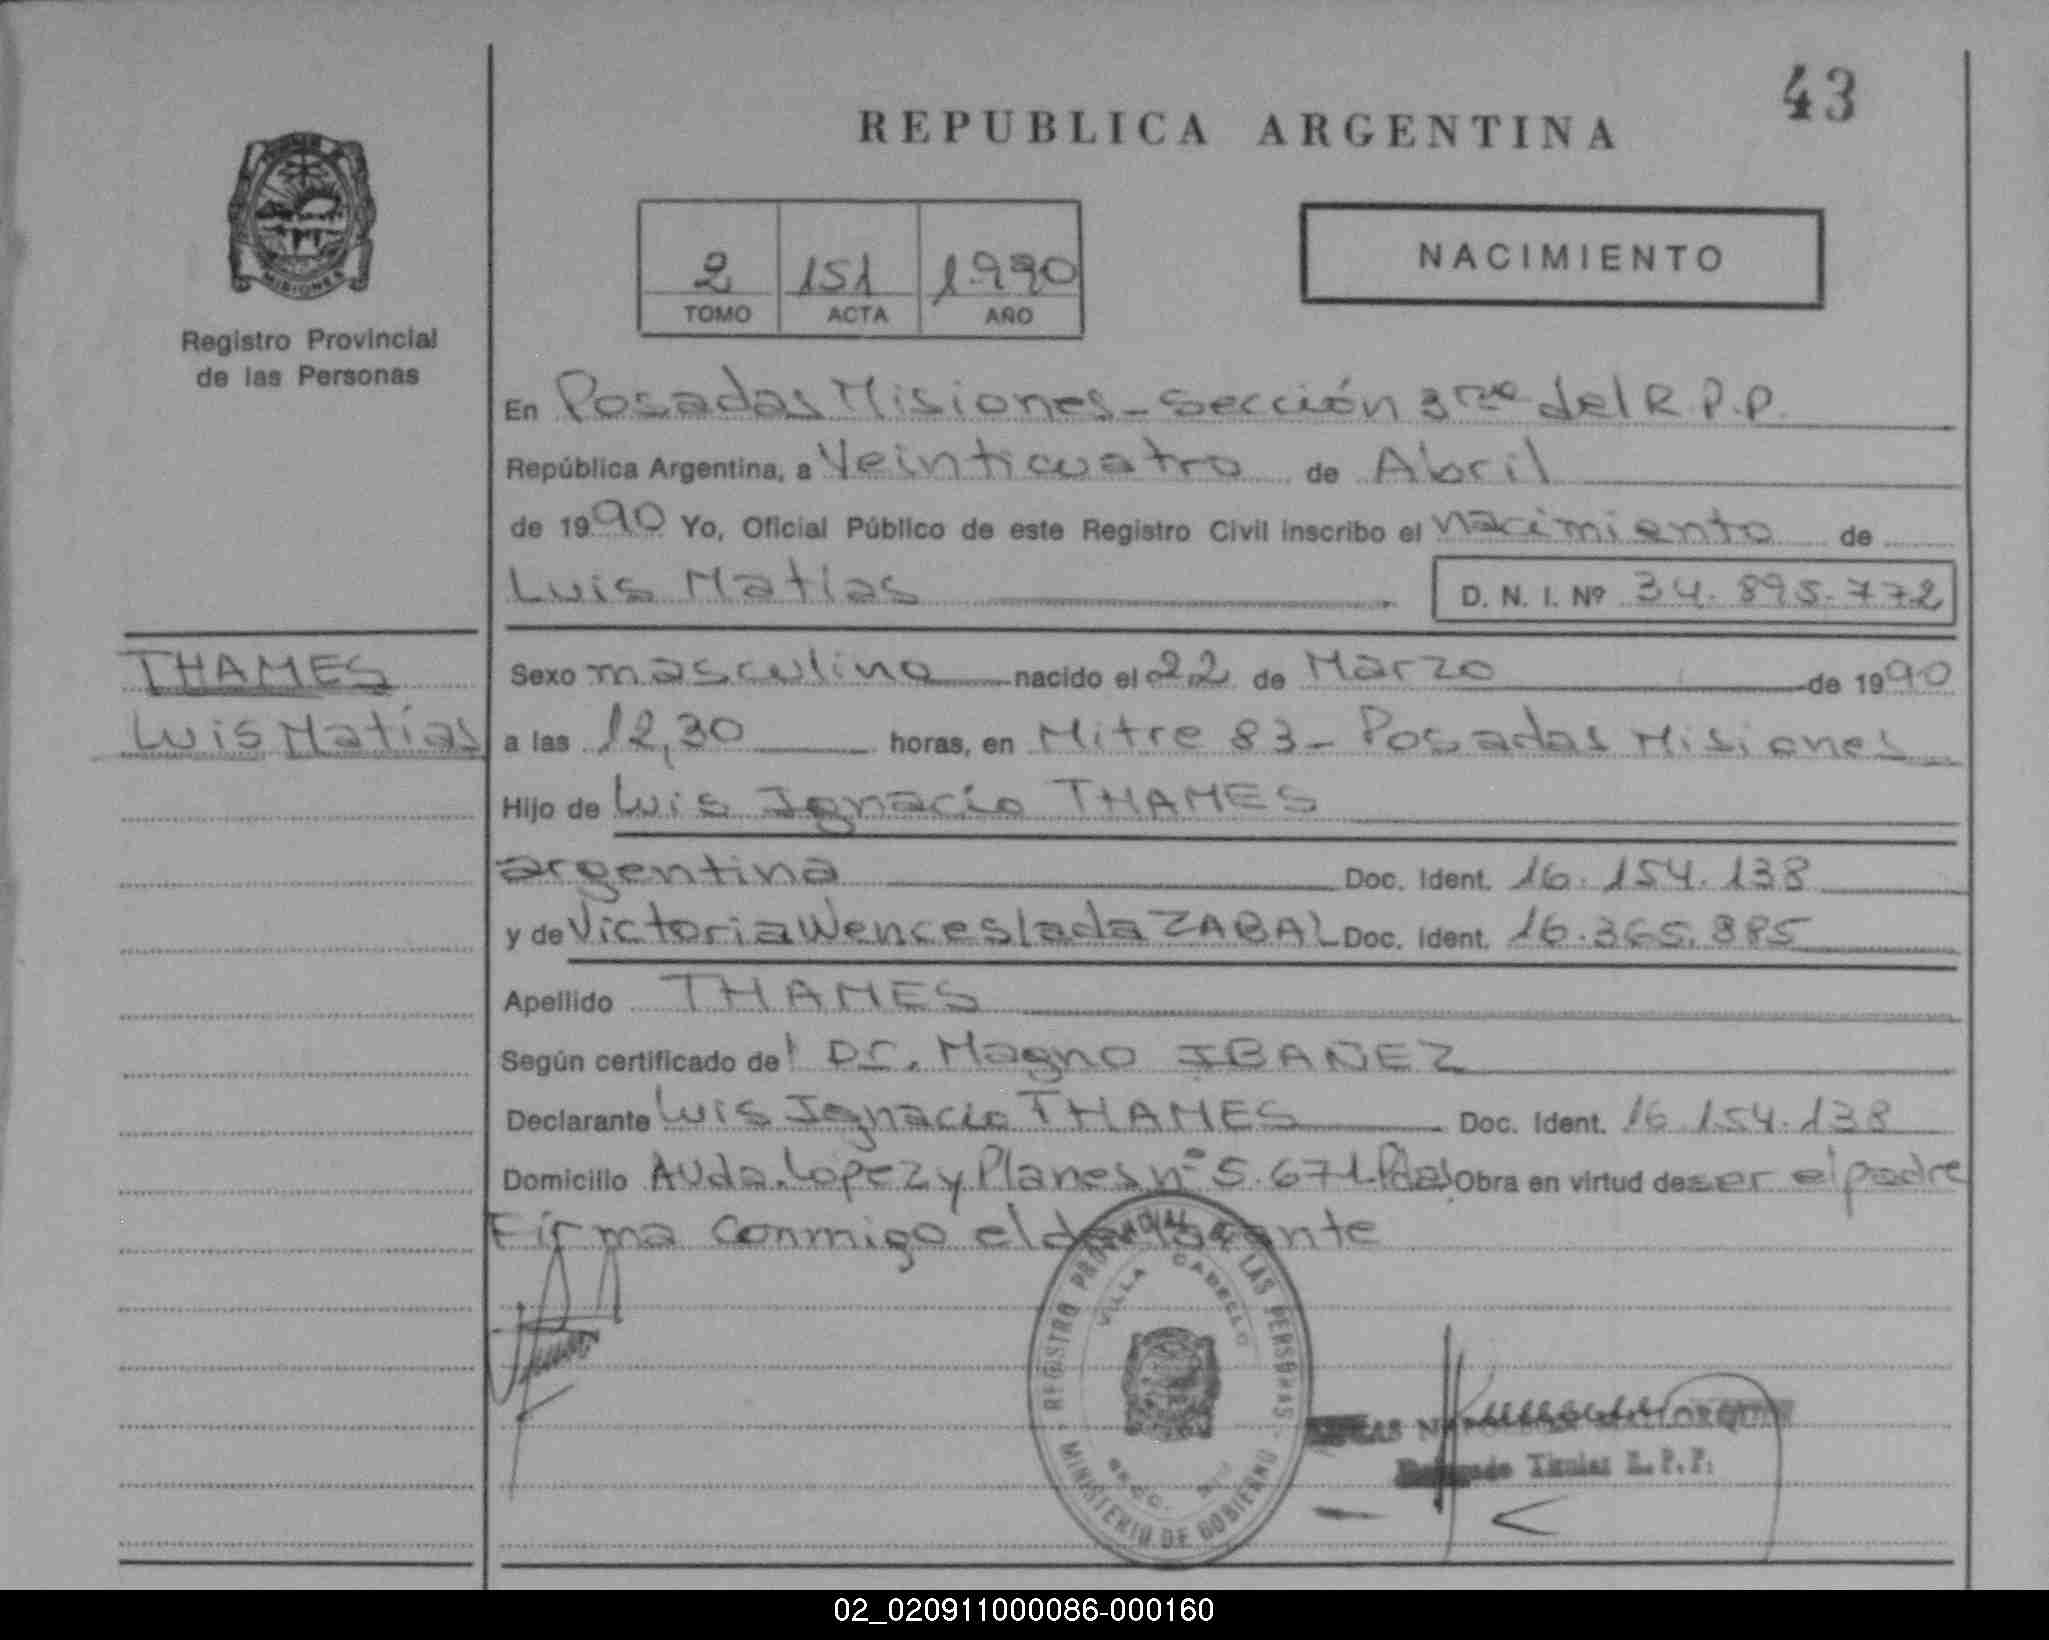 43
REPUBLICA ARGENTINA
MISIONES
Registro Provincial
de las Personas
2 151 1.990
TOMO ACTA AÑO
NACIMIENTO
En Posadas Misiones - Sección 3ra del R.P.P.
República Argentina, a Veinticuatro de Abril
de 1990 Yo, Oficial Público de este Registro Civil inscribo el nacimiento de
Luis Matías D. N. I. Nº 34.895.772
THAMES
Luis Matías
Sexo masculino nacido el 22 de Marzo de 1990
a las 12,30 horas, en Mitre 83 - Posadas Misiones
Hijo de Luis Ignacio THAMES
argentina Doc. Ident. 16.154.138
y de Victoria Wenceslada ZABAL Doc. Ident. 16.365.885
Apellido THAMES
Según certificado de l Dr. Magno IBAÑEZ
Declarante Luis Ignacio THAMES Doc. Ident. 16.154.138
Domicilio Avda. Lopez y Planes nº 5.671 Pdas Obra en virtud de ser el padre
Firma conmigo el declarante
REGISTRO PROVINCIAL DE LAS PERSONAS
VILLA CABELLO
SECC. 3ra
MINISTERIO DE GOBIERNO
Titular R.P.P.
02_020911000086-000160